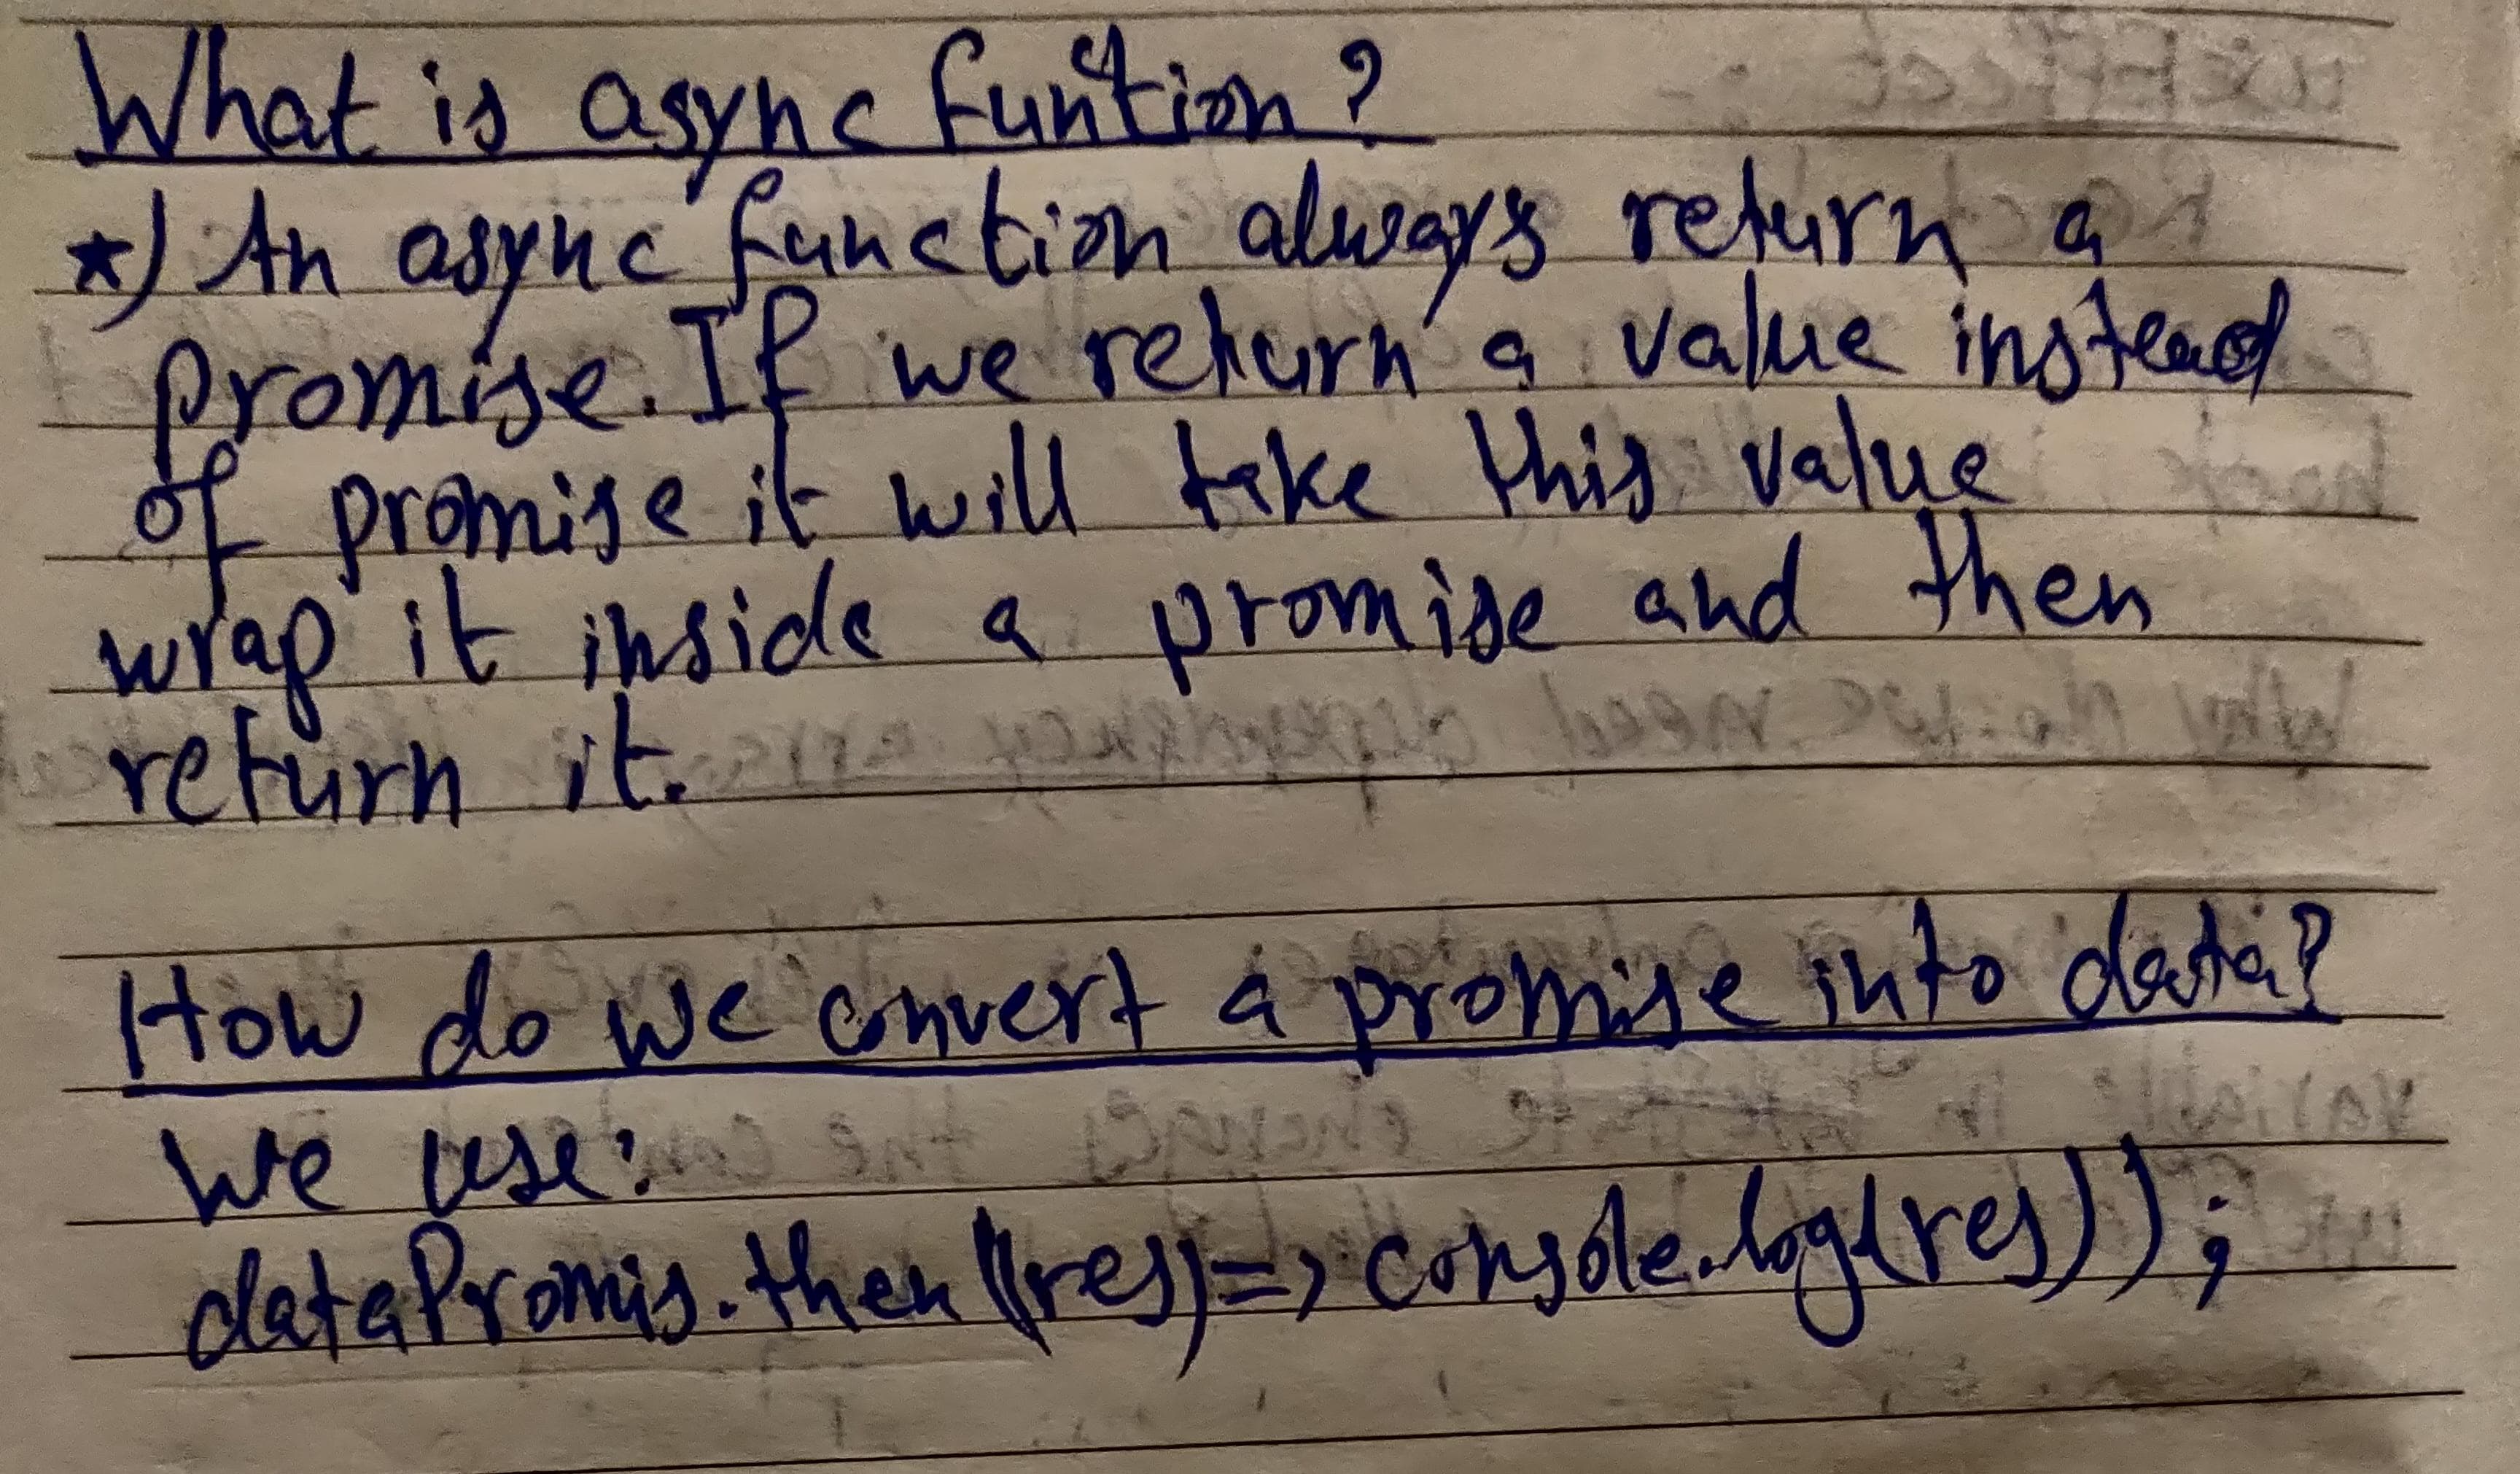 What is async function?
*) An async function always return a
promise. If we return a value instead
of promise it will take this value
wrap it inside a promise and then
return it.
How do we convert a promise into data?
we use:
dataPromis.then((res)=> console.log(res));